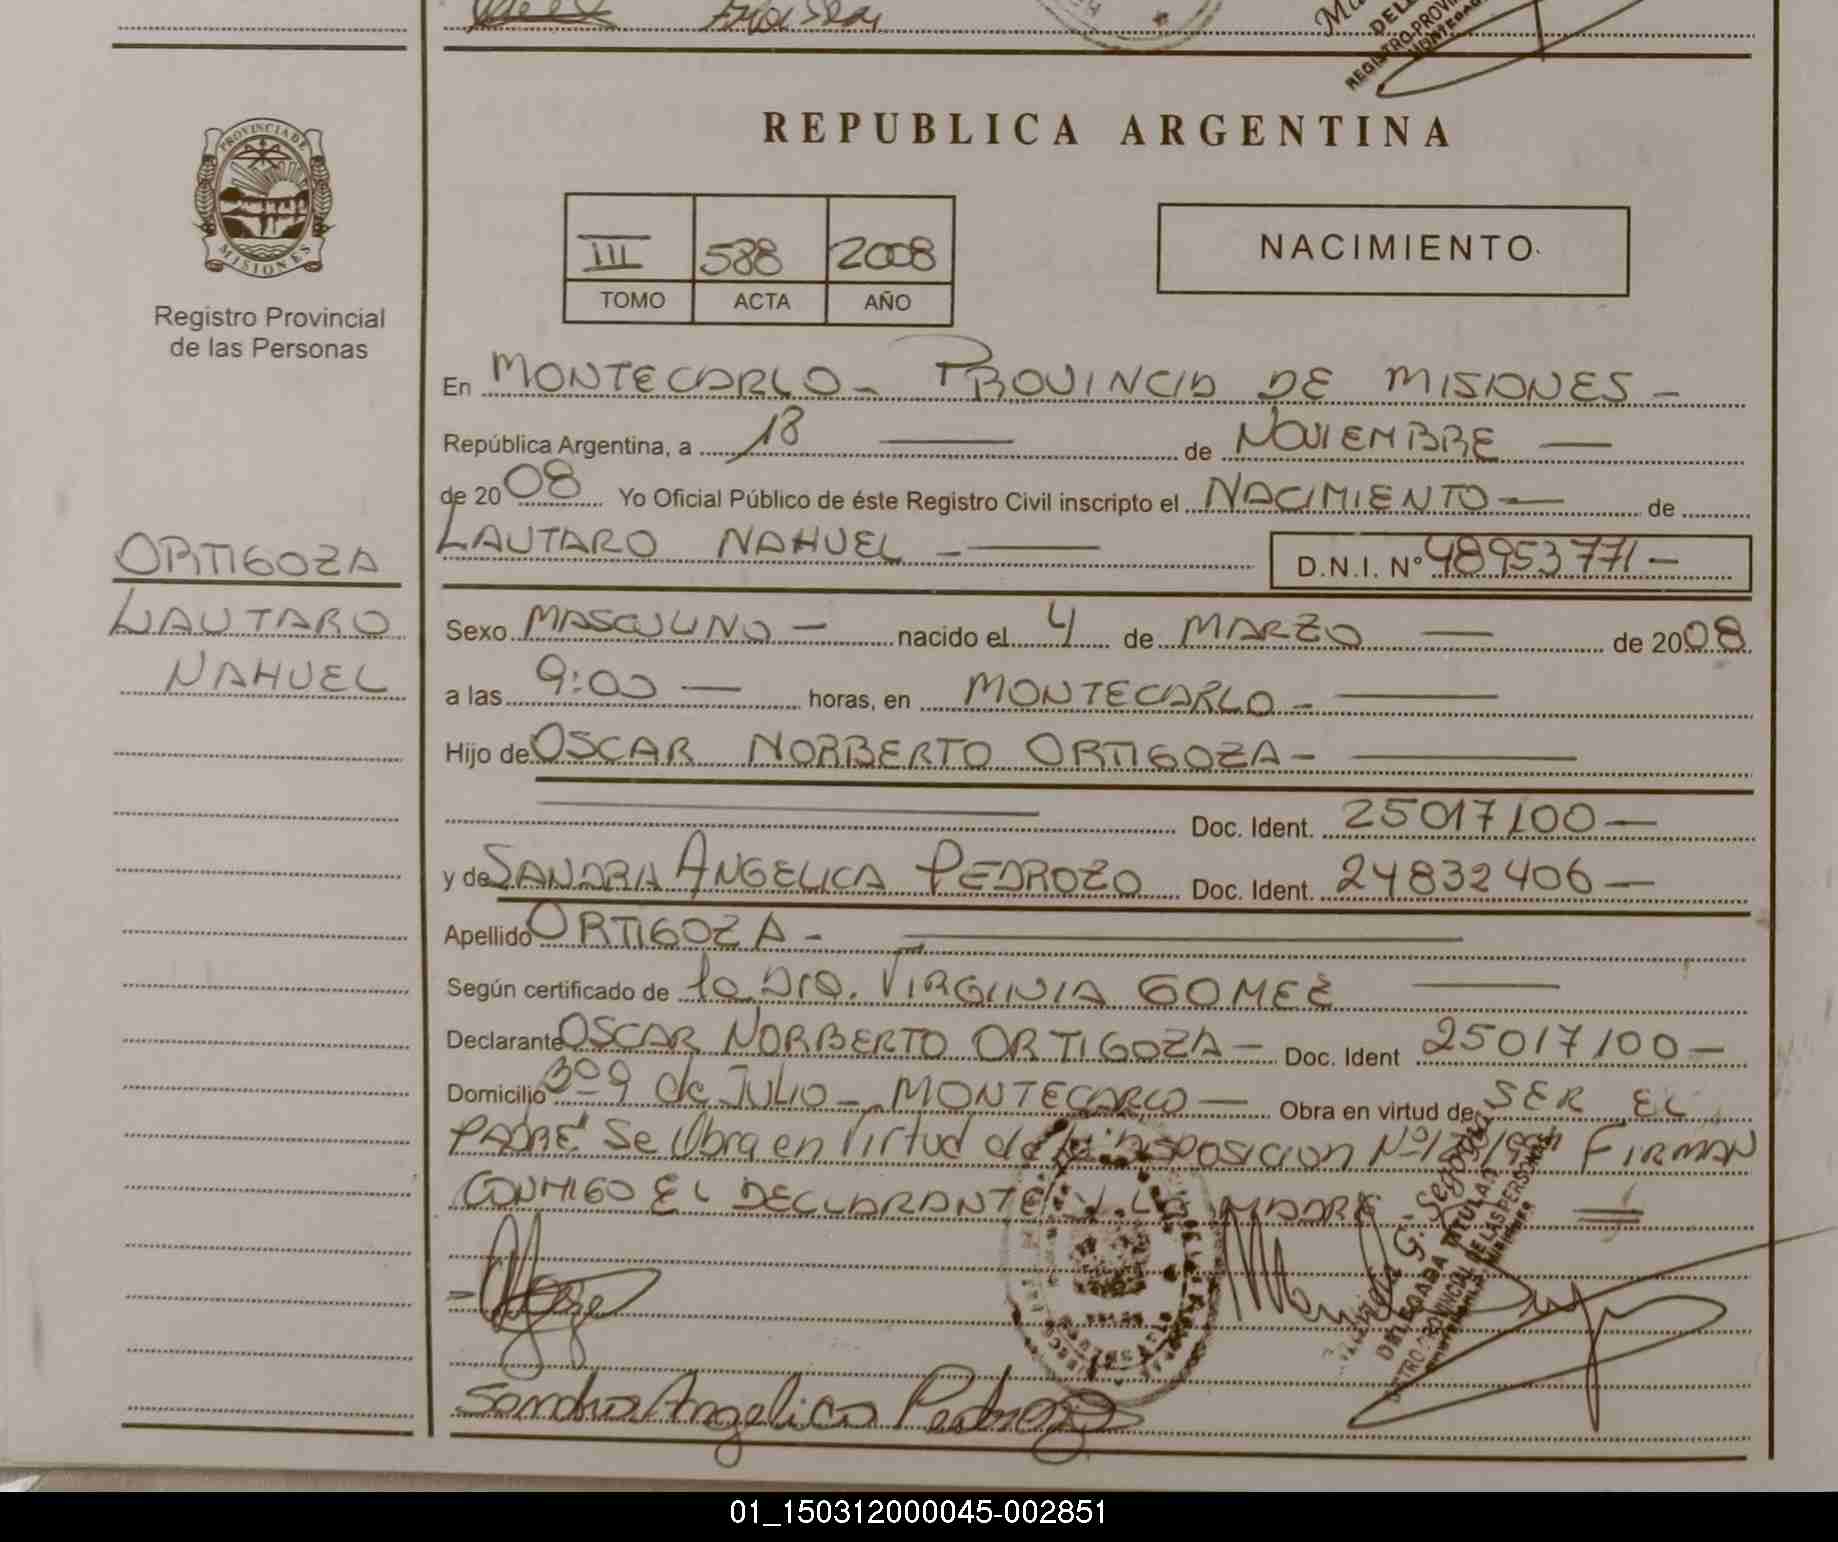 REPUBLICA ARGENTINA
PROVINCIA DE
MISIONES
Registro Provincial
de las Personas
III 588 2008
TOMO ACTA AÑO
NACIMIENTO
En MONTECARLO - PROVINCIA DE MISIONES -
República Argentina, a 18 — de NOVIEMBRE —
de 2008 Yo Oficial Público de éste Registro Civil inscripto el NACIMIENTO — de
LAUTARO NAHUEL - — D.N.I. N° 48953771 -
ORTIGOZA
LAUTARO
NAHUEL
Sexo MASCULINO - nacido el 4 de MARZO — de 2008
a las 9:00 — horas, en MONTECARLO - —
Hijo de OSCAR NORBERTO ORTIGOZA - —
Doc. Ident. 25017100 —
y de SANDRA ANGELICA PEDROZO Doc. Ident. 24832406 —
Apellido ORTIGOZA - —
Según certificado de la Dra. VIRGINIA GOMEZ —
Declarante OSCAR NORBERTO ORTIGOZA - Doc. Ident 25017100 -
Domicilio Bº 9 de JULIO - MONTECARLO — Obra en virtud de SER EL
PADRE Se Obra en Virtud de la DISPOSICION Nº FIRMAN
CONMIGO EL DECLARANTE Y LA MADRE
DELEGADA TITULAR
Sandra Angelica Pedrozo
01_150312000045-002851